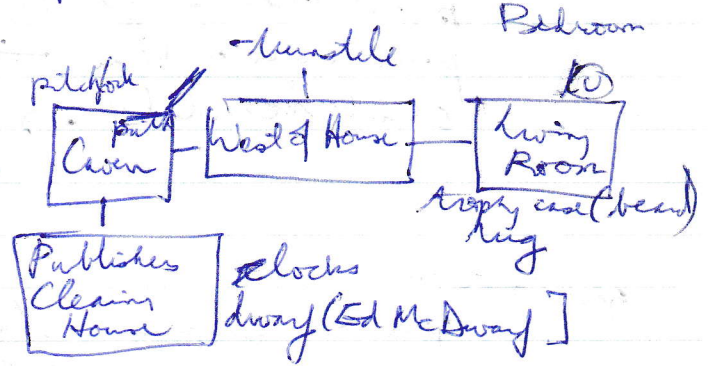 Bedroom
-turnstile
pitchfork
U
path
Cavern
West of House
Living
Room
trophy case (beard)
rug
Publishers
Clearing
House
clocks
dwarf (Ed McDwarf]